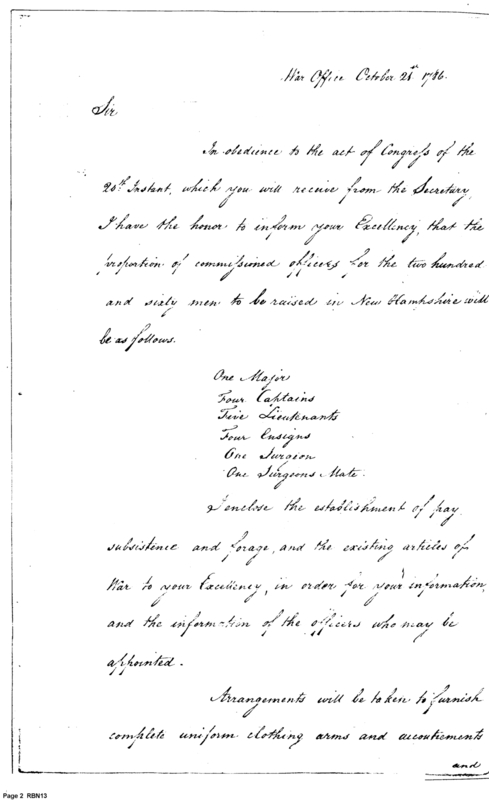 War Office October 21st 1786.
Sir
In obedience to the act of Congress of the
20th Instant, which you will receive from the Secretary,
I have the honor to inform your Excellency, that the
proportion of commissioned officers for the two hundred
and sixty men to be raised in New Hampshire will
be as follows.
One Major
Four Captains
Five Lieutenants
Four Ensigns
One Surgeon
One Surgeons Mate.
I enclose the establishment of pay
subsistence and forage, and the existing articles of
War to your Excellency, in order for your information,
and the information of the officers who may be
appointed.
Arrangements will be taken to furnish
complete uniform clothing arms and accoutrements
and
Page 2 RBN13